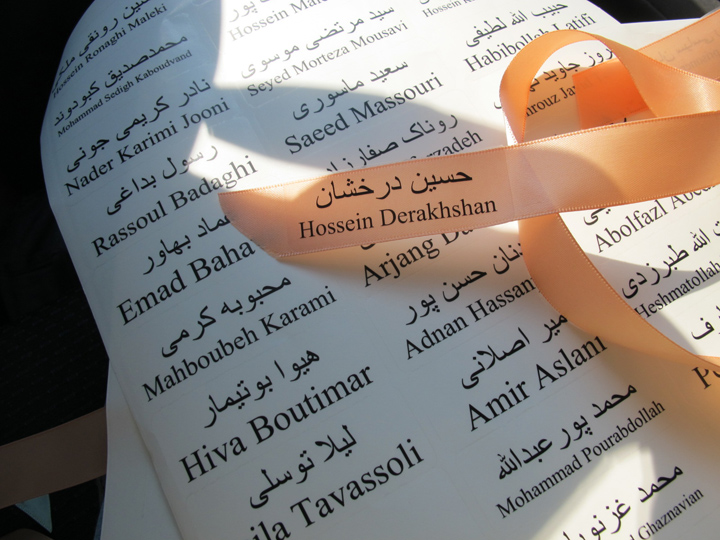 حسین رونقی ملکی
Hossein Ronaghi Maleki
محمدصدیق کبودوند
Mohammad Sedigh Kaboudvand
نادر کریمی جونی
Nader Karimi Jooni
رسول بداغی
Rassoul Badaghi
عماد بهاور
Emad Baha
محبوبه کرمی
Mahboubeh Karami
هیوا بوتیمار
Hiva Boutimar
لیلا توسلی
ila Tavassoli
پور
Hossein
سید مرتضی موسوی
Seyed Morteza Mousavi
سعید ماسوری
Saeed Massouri
روناک صفارزاده
zadeh
حسین درخشان
Hossein Derakhshan
Arjang
عدنان حسن پور
Adnan Hassan
امیر اصلانی
Amir Aslani
محمد پور عبدالله
Mohammad Pourabdollah
محمد غزنویان
Ghaznavian
Hossein
حبیب الله لطیفی
Habibollah Latifi
جاوید
Abolfazl
الله طبرزدی
Heshmatollah